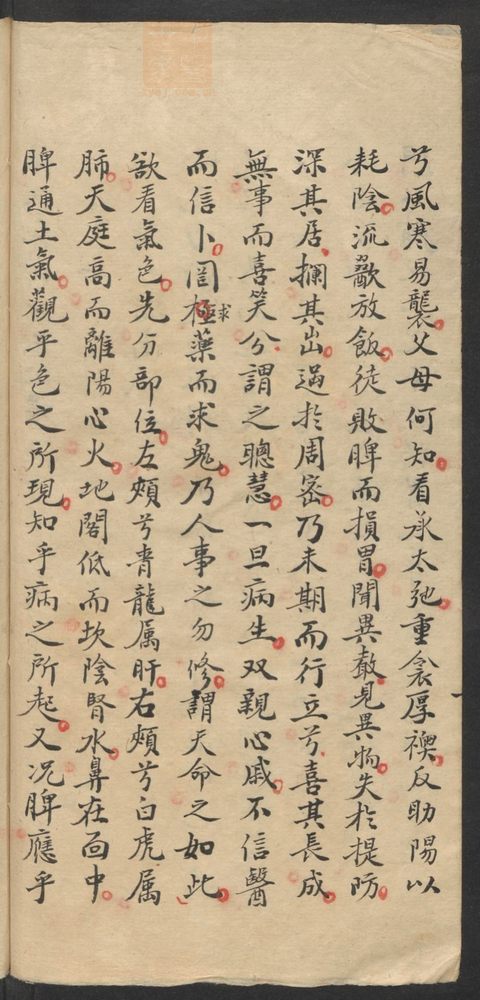 兮風寒易襲父母何知看承太弛重衾厚襖反助陽以
耗陰流歠放飯徒敗脾而損胃聞異聲見異物失於提防
深其居攔其出過於周密乃未期而行立兮喜其長成
無事而喜笑兮謂之聰慧一旦病生双親心戚不信醫
而信卜罔極求藥而求鬼乃人事之勿修謂天命之如此
欲看氣色先分部位左頰兮青龍属肝右頰兮白虎属
肺天庭高而離陽心火地閣低而坎陰腎水鼻在面中
脾通土氣觀乎色之所現知乎病之所起又況脾應乎